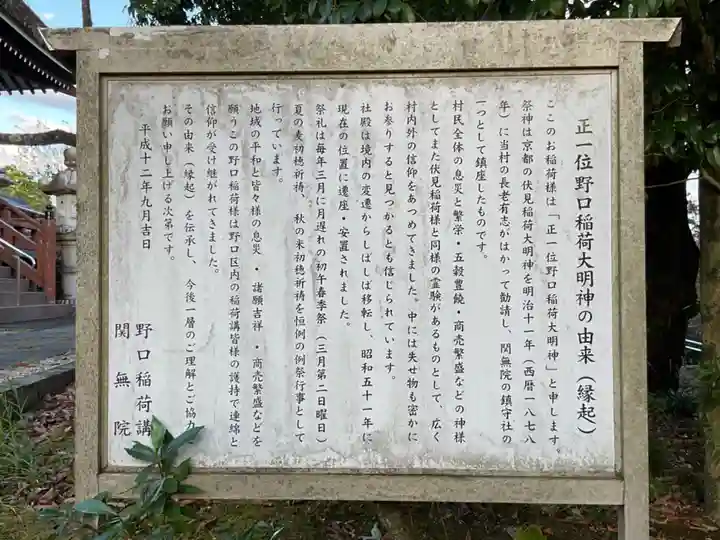 正一位野口稲荷大明神の由来(縁起)
ここのお稲荷様は「正一位野口稲荷大明神」と申します。
祭神は京都の伏見稲荷大明神を明治十一年(西暦一八七八
年)に当村の長老有志がはかって勧請し、関無院の鎮守社の
一つとして鎮座したものです。
村民全体の息災と繁栄・五穀豊饒・商売繁盛などの神様
としてまた伏見稲荷様と同様の霊験があるものとして、広く
村内外の信仰をあつめてきました。中には失せ物も密かに
お参りすると見つかるとも信じられています。
社殿は境内の変遷からしばしば移転し、昭和五十一年に
現在の位置に遷座・安置されました。
祭礼は毎年三月に月遅れの初午春季祭(三月第二日曜日)
夏の麦初穂祈祷、秋の米初穂祈祷を恒例の例祭行事として
行っています。
地域の平和と皆々様の息災・諸願吉祥・商売繁盛などを
願うこの野口稲荷様は野口区内の稲荷講皆様の護持で連綿と
信仰が受け継がれてきました。
その由来(縁起)を伝承し、今後一層のご理解とご協力
お願い申し上げる次第です。
平成十二年九月吉日
野口稲荷講
関無院